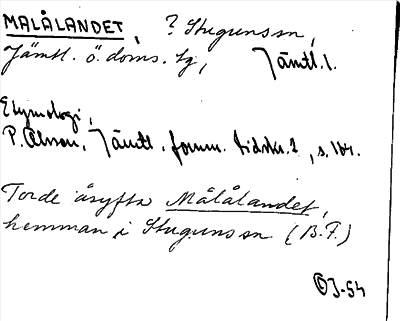 MALÅLANDET, ? Stuguns sn,
Jämtl. ö. doms. tg, Jämtl. l.
Etymologi,
P. Olsson, Jämtl. fornm. tidskr. 2, s. 164.
Torde åsyfta Målålandet,
hemman i Stuguns sn (B.F.)
OJ-54